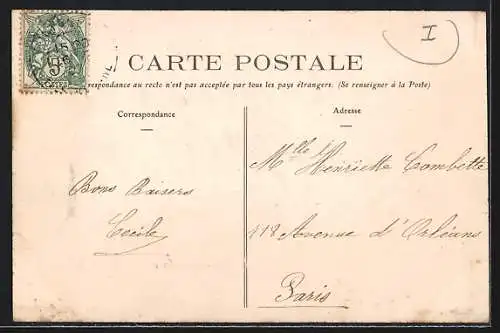 I
CARTE POSTALE
correspondance au recto n'est pas acceptée par tous les pays étrangers. (Se renseigner à la Poste)
Correspondance
Adresse
Bons Baisers
Cecile
Mlle Henriette Combette
118 Avenue d'Orléans
Paris